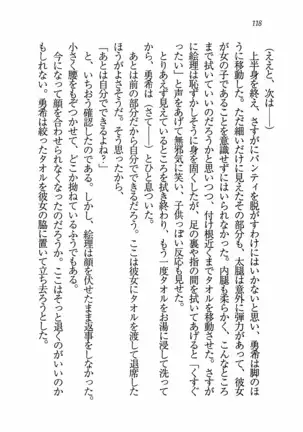 118
(ええと、次は――)
上半身を終え、さすがにパンティを脱がすわけにはいかないと思い、勇希は脚のほ
うに移動した。ただ細いだけに見えたその部分も、太腿は意外に弾力があって、彼女
が女の子であることを意識せずにはいられなかった。内腿も柔らかく、こんなところ
いいのだろうかと思いつつ、付け根近くまでタオルを移動させた。さすが
に絵理は恥ずかしそうに身を固くしたが、足の裏や指の間を拭いてあげると「くすぐ
ったい」と声をあげて無邪気に笑い、子供っぽい反応も見せた。
とりあえず見えているところを拭き終わり、もう一度タオルをお湯に浸して洗って
から、勇希は(さて――)とひと息ついた。
あとは前の部分だから自分でできるだろう。ここは彼女にタオルを渡して退席した
ほうがよさそうだ。そう思ったから、
「あとは自分でできるよね?」
と、いちおう確認したのである。しかし、絵理は顔を伏せたまま返事をしなかった。
小さく腰をもぞつかせて、どこか拗ねているふうでもある。
今になって顔を合わせられなくなったのだろうか。ここはそっと退くのがいいのか
もしれない。勇希は絞ったタオルを彼女の脇に置いて立ち去ろうとした。